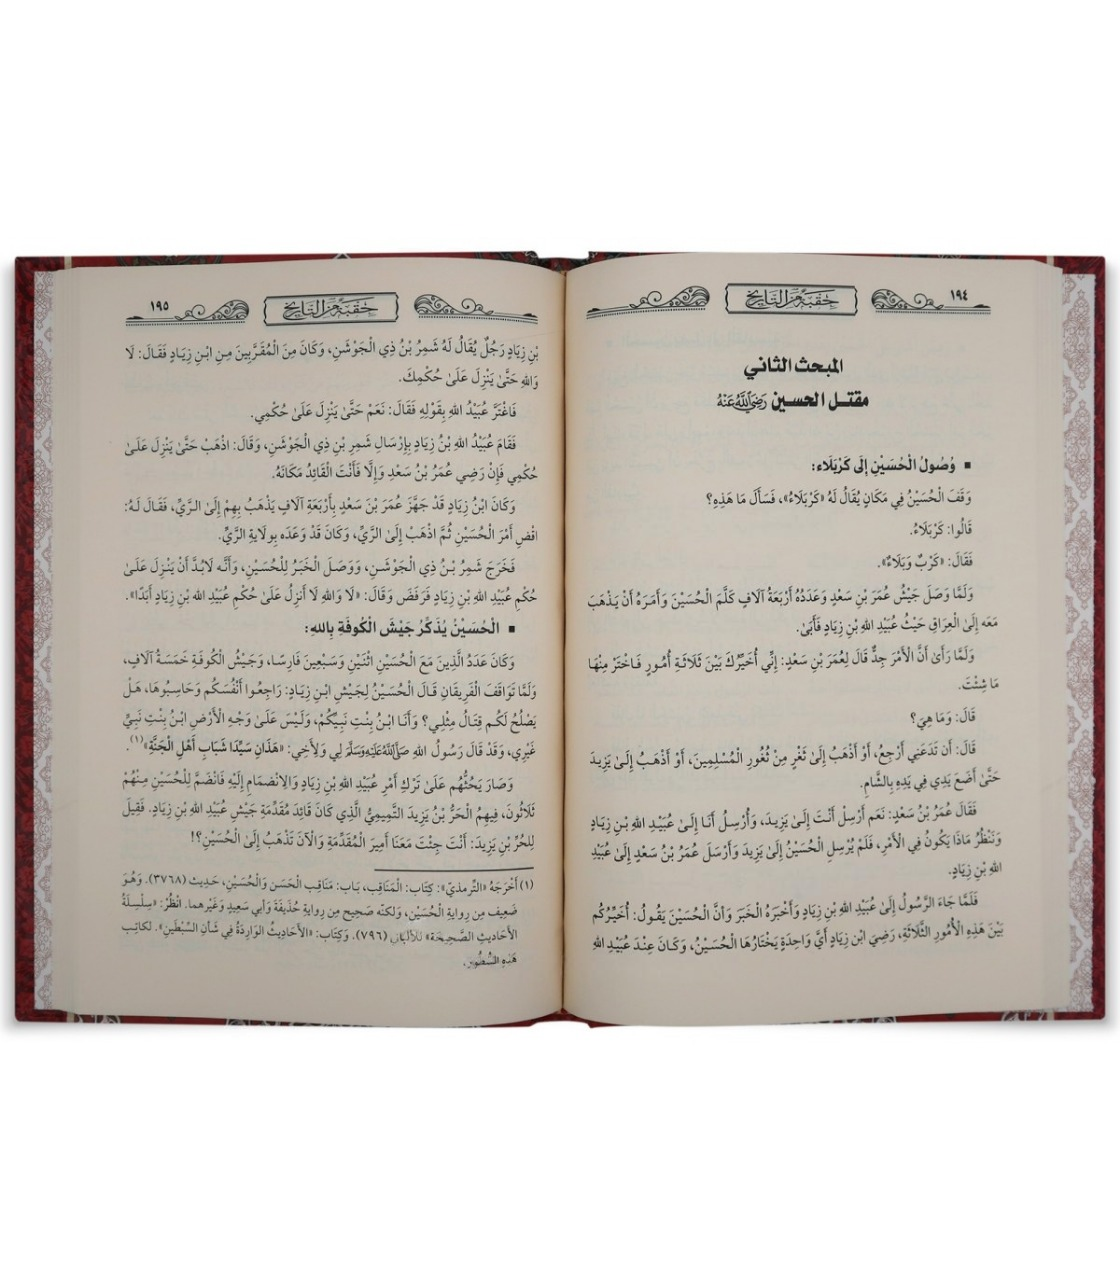 ١٩٤
حقبة من التاريخ
المبحث الثاني
مقتل الحسين رَضِيَ اللَّهُ عَنْهُ
▪ وُصُولُ الْحُسَيْنِ إِلَى كَرْبَلَاء:
وَقَفَ الْحُسَيْنُ فِي مَكَانٍ يُقَالُ لَهُ «كَرْبَلَاءُ»، فَسَأَلَ مَا هَذِهِ؟
قَالُوا: كَرْبَلَاءُ.
فَقَالَ: «كَرْبٌ وَبَلَاءٌ».
وَلَمَّا وَصَلَ جَيْشُ عُمَرَ بْنِ سَعْدٍ وَعَدَدُهُ أَرْبَعَةُ آلَافٍ كَلَّمَ الْحُسَيْنَ وَأَمَرَهُ أَنْ يَذْهَبَ
مَعَه إِلَىٰ الْعِرَاقِ حَيْثُ عُبَيْدِ اللهِ بْنِ زِيَادٍ فَأَبَىٰ.
وَلَمَّا رَأَىٰ أَنَّ الْأَمْرَ جِدٌّ قَالَ لِعُمَرَ بْنِ سَعْدٍ: إِنِّي أُخَيِّرُكَ بَيْنَ ثَلَاثَةِ أُمُورٍ فَاخْتَرْ مِنْهَا
مَا شِئْتَ.
قَالَ: وَمَا هِيَ؟
قَالَ: أَنْ تَدَعَنِي أَرْجِعُ، أَوْ أَذْهَبُ إِلَىٰ ثَغْرٍ مِنْ ثُغُورِ الْمُسْلِمِينَ، أَوْ أَذْهَبُ إِلَىٰ يَزِيدَ
حَتَّىٰ أَضَعَ يَدِي فِي يَدِهِ بِالشَّامِ.
فَقَالَ عُمَرُ بْنُ سَعْدٍ: نَعَم أَرْسِلْ أَنْتَ إِلَىٰ يَزِيدَ، وَأُرْسِلُ أَنَا إِلَىٰ عُبَيْدِ اللهِ بْنِ زِيَادٍ
وَنَنْظُرُ مَاذَا يَكُونُ فِي الْأَمْرِ، فَلَمْ يُرْسِلِ الْحُسَيْنُ إِلَىٰ يَزِيدَ وَأَرْسَلَ عُمَرُ بْنُ سَعْدٍ إِلَىٰ عُبَيْدِ
اللهِ بْنِ زِيَادٍ.
فَلَمَّا جَاءَ الرَّسُولُ إِلَىٰ عُبَيْدِ اللهِ بْنِ زِيَادٍ وَأَخْبَرَهُ الْخَبَرَ وَأَنَّ الْحُسَيْنَ يَقُولُ: أُخَيِّرُكُم
بَيْنَ هَذِهِ الْأُمُورِ الثَّلَاثَةِ، رَضِيَ ابْن زِيَادٍ أَيَّ وَاحِدَةٍ يَخْتَارُهَا الْحُسَيْنُ، وَكَانَ عِنْدَ عُبَيْدِ اللهِ
١٩٥
حقبة من التاريخ
بْنِ زِيَادٍ رَجُلٌ يُقَالُ لَهُ شَمِرُ بْنُ ذِي الْجَوْشَنِ، وَكَانَ مِنَ الْمُقَرَّبِينَ مِنِ ابْنِ زِيَادٍ فَقَالَ: لَا
وَاللهِ حَتَّىٰ يَنْزِلَ عَلَىٰ حُكْمِكَ.
فَاغْتَرَّ عُبَيْدُ اللهِ بِقَوْلِهِ فَقَالَ: نَعَمْ حَتَّىٰ يَنْزِلَ عَلَىٰ حُكْمِي.
فَقَامَ عُبَيْدُ اللهِ بْنُ زِيَادٍ بِإِرْسَالِ شَمِرِ بْنِ ذِي الْجَوْشَنِ، وَقَالَ: اذْهَبْ حَتَّىٰ يَنْزِلَ عَلَىٰ
حُكْمِي فَإِنْ رَضِيَ عُمَرُ بْنُ سَعْدٍ وَإِلَّا فَأَنْتَ الْقَائِدُ مَكَانَهُ.
وَكَانَ ابْنُ زِيَادٍ قَدْ جَهَّزَ عُمَرَ بْنَ سَعْدٍ بِأَرْبَعَةِ آلَافٍ يَذْهَبُ بِهِمْ إِلَىٰ الرَّيِّ، فَقَالَ لَهُ:
اقْضِ أَمْرَ الْحُسَيْنِ ثُمَّ اذْهَبْ إِلَىٰ الرَّيِّ، وَكَانَ قَدْ وَعَدَه بِوِلَايَةِ الرَّيِّ.
فَخَرَجَ شَمِرُ بْنُ ذِي الْجَوْشَنِ، وَوَصَلَ الْخَبَرُ لِلْحُسَيْنِ، وَأَنَّه لَابُدَّ أَنْ يَنْزِلَ عَلَىٰ
حُكْمِ عُبَيْدِ اللهِ بْنِ زِيَادٍ فَرَفَضَ وَقَالَ: «لَا وَاللهِ لَا أَنزِلُ عَلَىٰ حُكْمِ عُبَيْدِ اللهِ بْنِ زِيَادٍ أَبَدًا».
▪ الْحُسَيْنُ يُذَكِّرُ جَيْشَ الْكُوفَةِ بِاللهِ:
وَكَانَ عَدَدُ الَّذِينَ مَعَ الْحُسَيْنِ اثْنَيْنِ وَسَبْعِينَ فَارِسًا، وَجَيْشُ الْكُوفَةِ خَمْسَةُ آلَافٍ،
وَلَمَّا تَوَاقَفَ الْفَرِيقَانِ قَالَ الْحُسَيْنُ لِجَيْشِ ابْنِ زِيَادٍ: رَاجِعُوا أَنْفُسَكُم وَحَاسِبُوهَا، هَلْ
يَصْلُحُ لَكُم قِتَالُ مِثْلِي؟ وَأَنَا ابْنُ بِنْتِ نَبِيِّكُمْ، وَلَيْسَ عَلَىٰ وَجْهِ الْأَرْضِ ابْنُ بِنْتِ نَبِيٍّ
غَيْرِي، وَقَدْ قَالَ رَسُولُ اللهِ صَلَّى اللَّهُ عَلَيْهِ وَسَلَّمَ لِي وَلِأَخِي: «هَذَانِ سَيِّدَا شَبَابِ أَهْلِ الْجَنَّةِ»(١).
وَصَارَ يَحُثُّهُم عَلَىٰ تَرْكِ أَمْرِ عُبَيْدِ اللهِ بْنِ زِيَادٍ وَالِانْضِمَامِ إِلَيْهِ فَانْضَمَّ لِلْحُسَيْنِ مِنْهُمْ
ثَلَاثُونَ، فِيهِمُ الْحُرُّ بْنُ يَزِيدَ التَّمِيمِيُّ الَّذِي كَانَ قَائِدَ مُقَدِّمَةِ جَيْشِ عُبَيْدِ اللهِ بْنِ زِيَادٍ. فَقِيلَ
لِلْحُرِّ بْنِ يَزِيدَ: أَنْتَ جِئْتَ مَعَنَا أَمِيرَ الْمُقَدِّمَةِ وَالْآنَ تَذْهَبُ إِلَىٰ الْحُسَيْنِ؟!
(١) أَخْرَجَهُ «التِّرمذيّ»: كِتَاب: الْمَنَاقِبِ، بَاب: مَنَاقِب الْحَسَنِ وَالْحُسَيْنِ، حَدِيث (٣٧٦٨). وَهُوَ
ضَعِيف مِن رِوايةِ الْحُسَيْنِ، وَلكنّه صَحِيح مِن رِوايةِ حُذَيفَةَ وَأَبِي سَعِيدٍ وَغَيْرِهما. انْظُرْ: «سِلْسِلَةُ
الأَحَادِيثِ الصَّحِيحَة» لِلألبَانِي (٧٩٦). وَكِتَاب: «الأَحَادِيثُ الْوَارِدَةُ فِي شَأْنِ السِّبْطَيْنِ». لِكَاتِب
هَذِهِ السُّطُورِ.